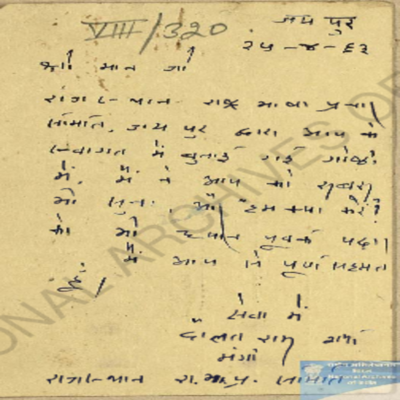 VIII/320
जय पुर
२५-४-६३
श्री मान जी
राजस्थान राष्ट्र भाषा प्रचार
समिति, जय पुर द्वारा आप के
स्वागत में बुलाई गई गोष्ठी
में, मैं ने आप को
भी सुना, और "हम क्या करें"
को भी ध्यान पूर्वक पढ़ा
मैं आप से पूर्ण सहमत
हूँ
सेवा में
दौलत राम शर्मा
मंत्री
राजस्थान रा. भा. प्र. समिति